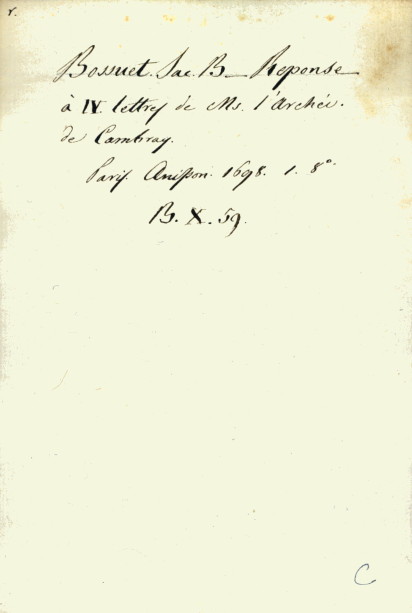 r.
Bossuet. Jac. B_ Reponse
à IV. lettres de Ms. l'Archév.
de Cambray.
Paris. Anisson. 1698. 1. 8°.
B. X. 59.
C